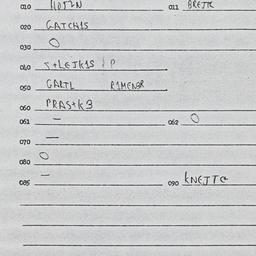 010 HOTZN 011 BREJTR
020 GATCH1S
030 O
040
050 GARTL R1MENSR
060 PRAS+K3
061 – 062 O
070 —
080 O
085 – 090 KNEJTO